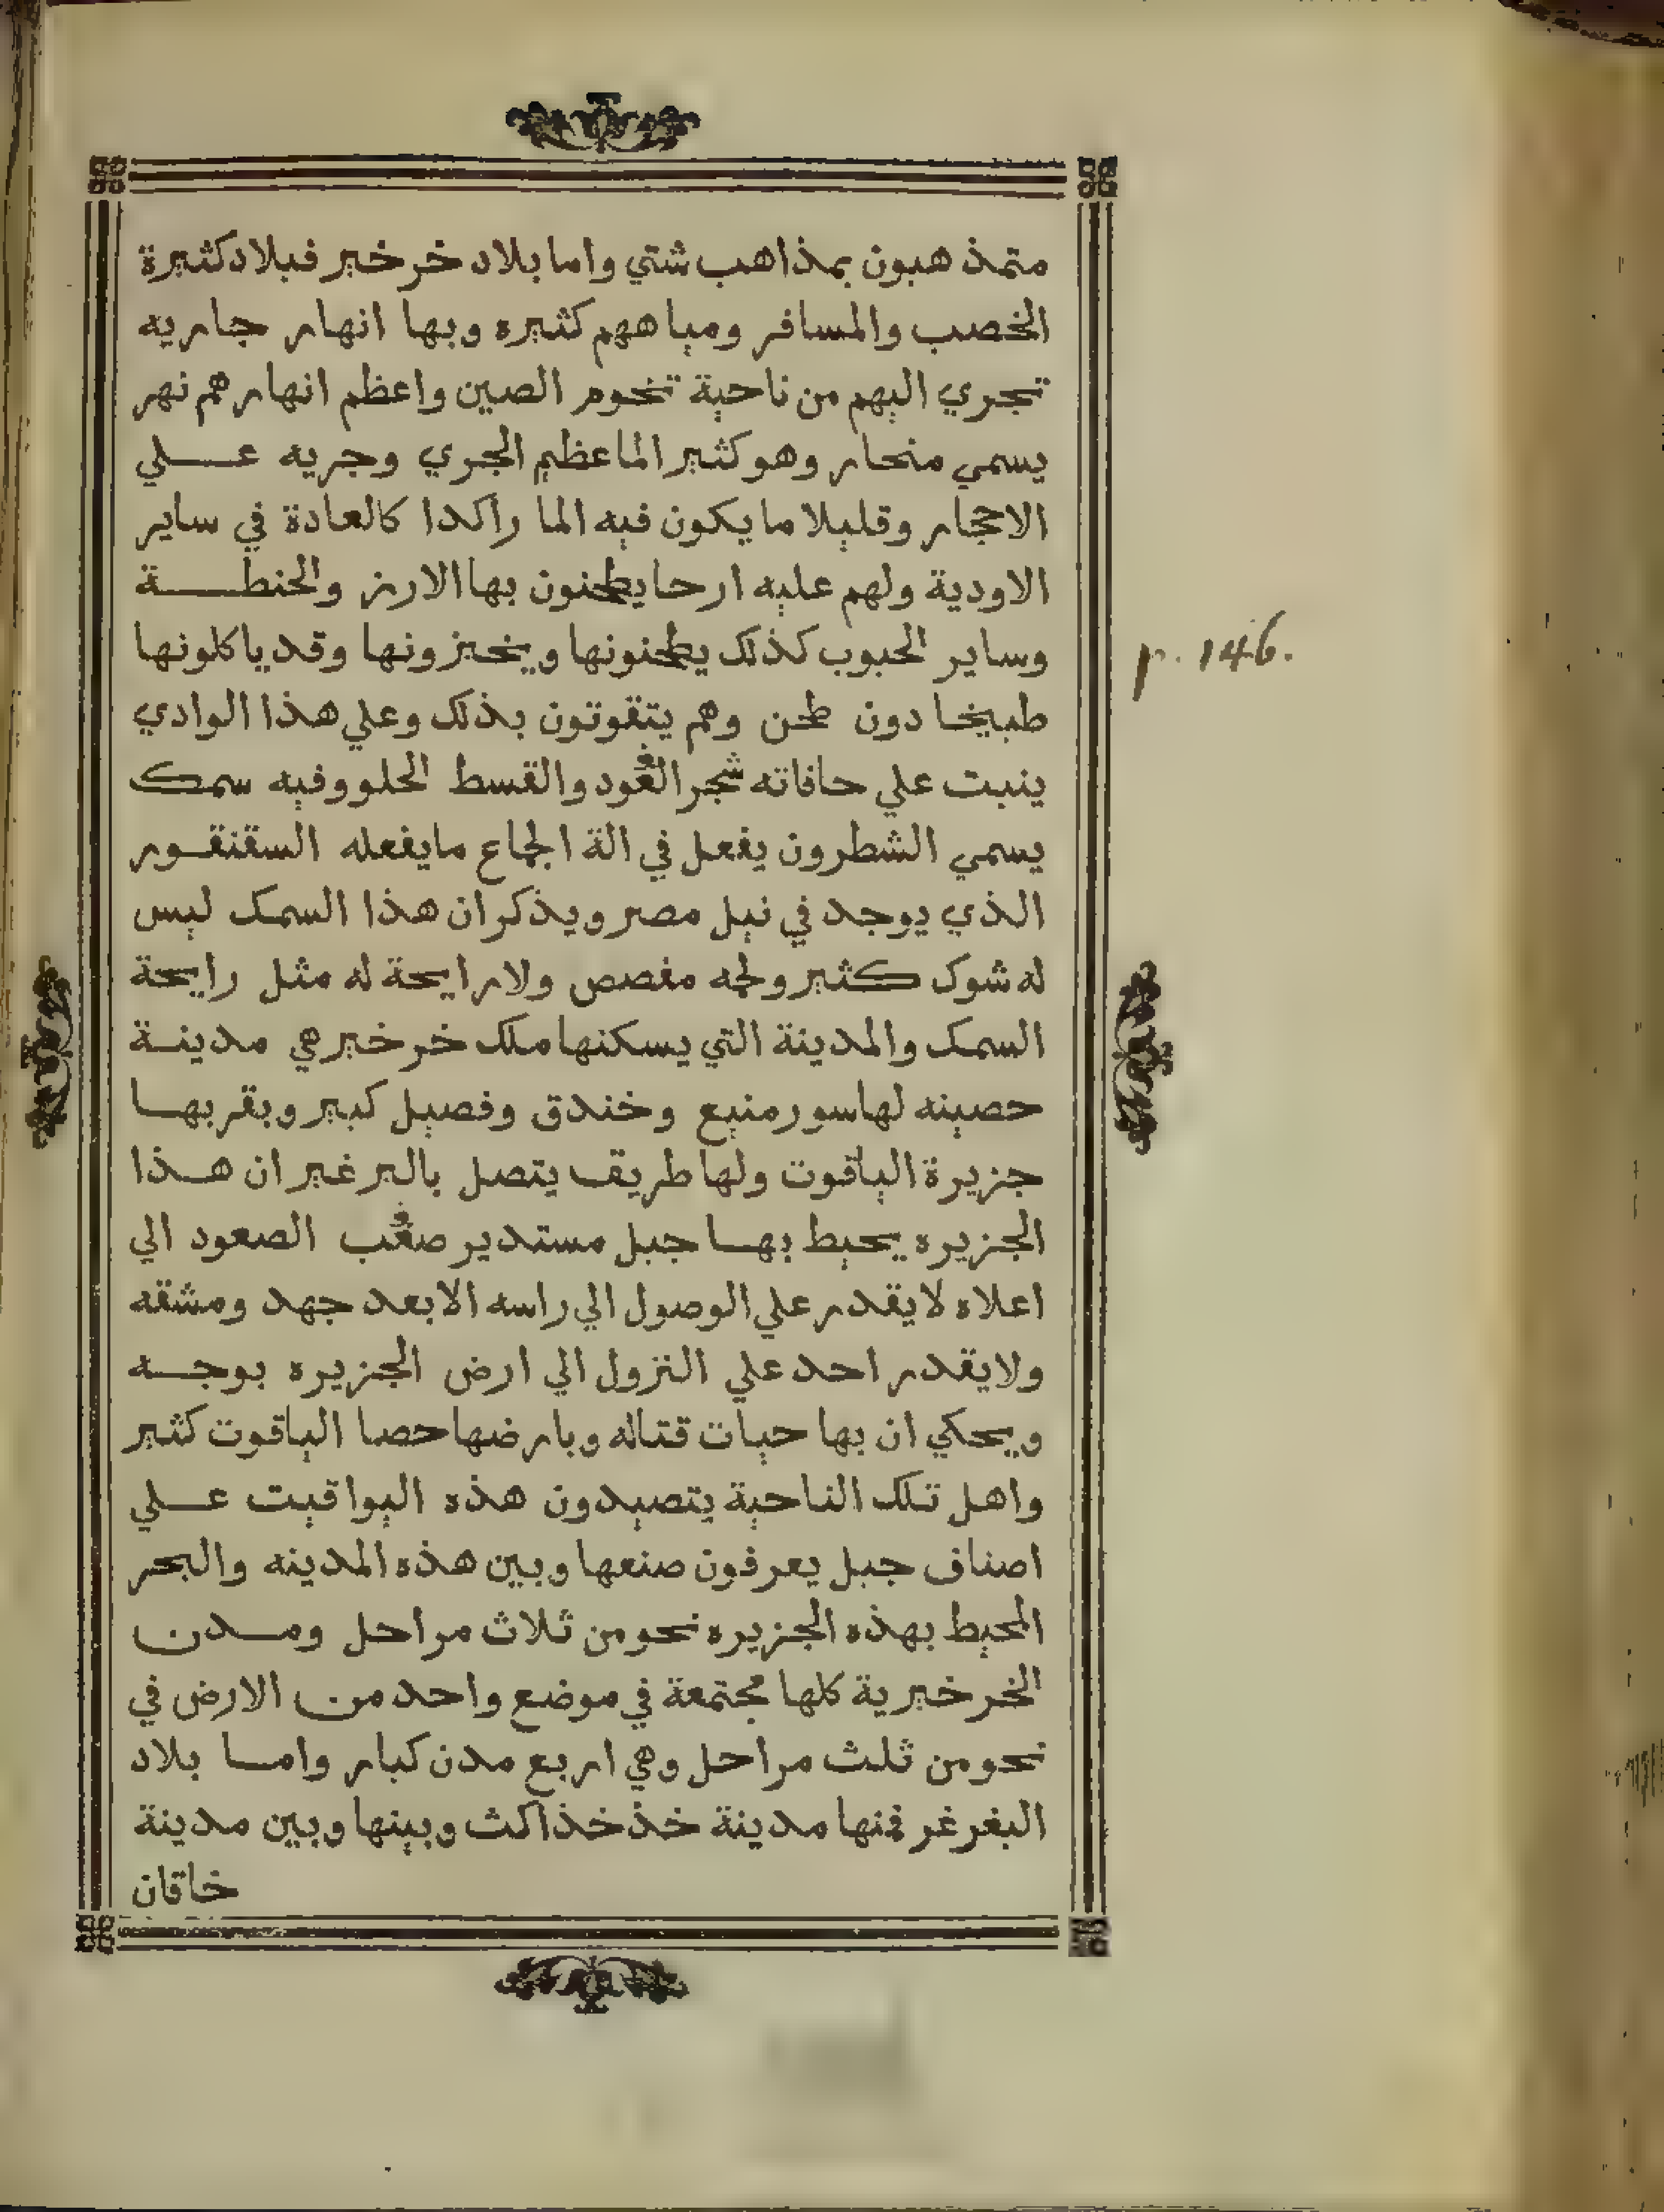 متمذهبون بمذاهب شتي واما بلاد خرخير فبلاد كثيرة
الخصب والمسافر ومياههم كثيره وبها انهار جاريه
تجري اليهم من ناحية تخوم الصين واعظم انهارهم نهر
يسمي منحار وهو كثير الما عظيم الجري وجريه علي
الاحجار وقليلا ما يكون فيه الما راكدا كالعادة في ساير
الاودية ولهم عليه ارحا يطحنون بها الارز والحنطة
وساير الحبوب كذلك يطحنونها ويخبزونها وقد ياكلونها
طبيخا دون طحن وهم يتقوتون بذلك وعلي هذا الوادي
ينبت علي حافاته شجر العود والقسط الحلو وفيه سمك
يسمي الشطرون يفعل في الة الجماع ما يفعله السقنقور
الذي يوجد في نيل مصر ويذكر ان هذا السمك ليس
له شوك كثير ولحمه مفصص ولا رايحة له مثل رايحة
السمك والمدينة التي يسكنها ملك خرخير هي مدينة
حصينه لها سور منيع وخندق وفصيل كبير وبقربها
جزيرة الياقوت ولها طريق يتصل بالبر غير ان هذا
الجزيره يحيط بها جبل مستدير صعب الصعود الي
اعلاه لا يقدر علي الوصول الي راسه الا بعد جهد ومشقه
ولا يقدر احد علي النزول الي ارض الجزيره بوجه
ويحكي ان بها حيات قتاله وبارضها حصا الياقوت كثير
واهل تلك الناحية يتصيدون هذه اليواقيت علي
اصناف جبل يعرفون صنعها وبين هذه المدينه والبحر
المحيط بهذه الجزيره نحو من ثلاث مراحل ومدن
الخرخيرية كلها مجتمعة في موضع واحد من الارض في
نحو من ثلث مراحل وهي اربع مدن كبار واما بلاد
البغرغر فمنها مدينة خذخذاكث وبينها وبين مدينة
خاقان
p. 146.